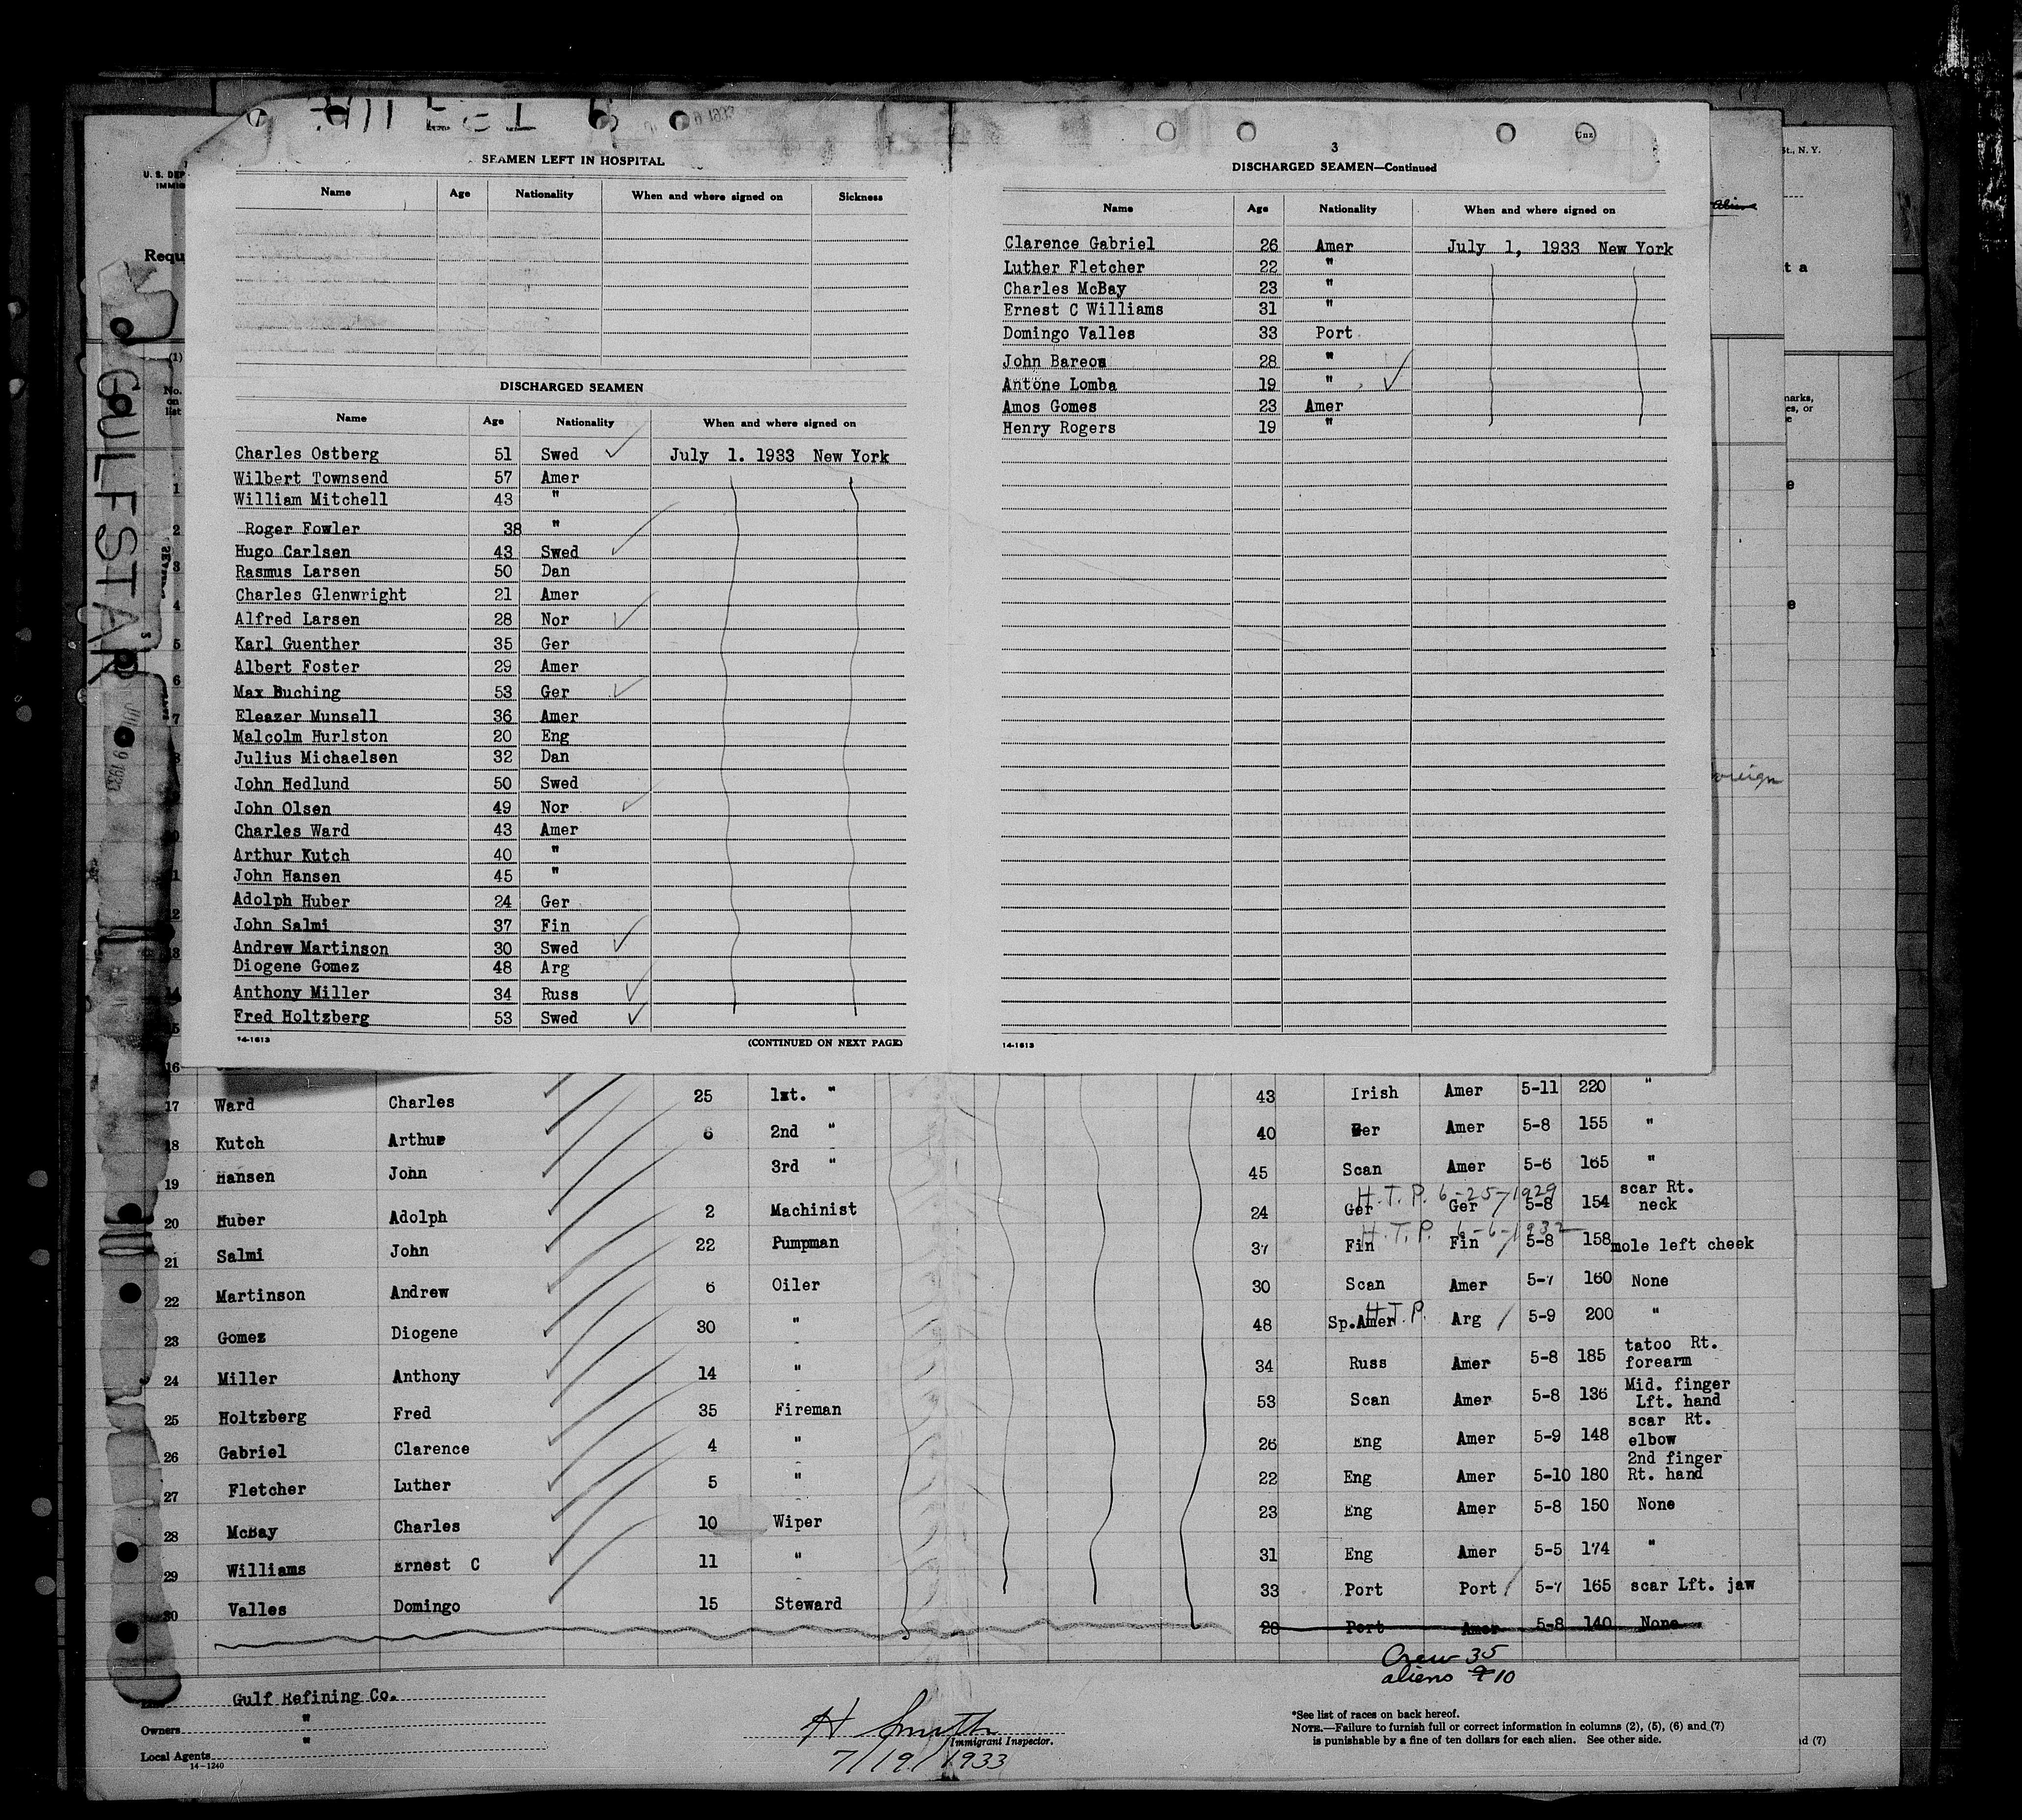 SEAMEN LEFT IN HOSPITAL
Name Age Nationality When and where signed on Sickness
DISCHARGED SEAMEN
Name Age Nationality When and where signed on
Charles Ostberg 51 Swed July 1. 1933 New York
Wilbert Townsend 57 Amer
William Mitchell 43 "
Roger Fowler 38 "
Hugo Carlsen 43 Swed
Rasmus Larsen 50 Dan
Charles Glenwright 21 Amer
Alfred Larsen 28 Nor
Karl Guenther 35 Ger
Albert Foster 29 Amer
Max Buching 53 Ger
Eleazer Munsell 36 Amer
Malcolm Hurlston 20 Eng
Julius Michaelsen 32 Dan
John Hedlund 50 Swed
John Olsen 49 Nor
Charles Ward 43 Amer
Arthur Kutch 40 "
John Hansen 45 "
Adolph Huber 24 Ger
John Salmi 37 Fin
Andrew Martinson 30 Swed
Diogene Gomez 48 Arg
Anthony Miller 34 Russ
Fred Holtzberg 53 Swed
14-1613 (CONTINUED ON NEXT PAGE)
3
DISCHARGED SEAMEN—Continued
Name Age Nationality When and where signed on
Clarence Gabriel 26 Amer July 1, 1933 New York
Luther Fletcher 22 "
Charles McBay 23 "
Ernest C Williams 31 "
Domingo Valles 33 Port
John Bareos 28 "
Antone Lomba 19 "
Amos Gomes 23 Amer
Henry Rogers 19 "
14-1613
U. S. DEP
IMMIG
Requ
(1)
No. on list
GULFSTAR
St., N. Y.
t a
oreign
1
2
3
4
5
6
7
16
17 Ward Charles 25 1st. " 43 Irish Amer 5-11 220 "
18 Kutch Arthur 6 2nd " 40 Ger Amer 5-8 155 "
19 Hansen John 3rd " 45 Scan Amer 5-6 165 "
H.T.P. 6-25-1929
20 Huber Adolph 2 Machinist 24 Ger Ger 5-8 154 scar Rt. neck
H.T.P. 6-6-1932
21 Salmi John 22 Pumpman 37 Fin Fin 5-8 158 mole left cheek
22 Martinson Andrew 6 Oiler 30 Scan Amer 5-7 160 None
H.T.P.
23 Gomez Diogene 30 " 48 Sp.Amer Arg 5-9 200 "
24 Miller Anthony 14 " 34 Russ Amer 5-8 185 tatoo Rt. forearm
25 Holtzberg Fred 35 Fireman 53 Scan Amer 5-8 136 Mid. finger Lft. hand
26 Gabriel Clarence 4 " 26 Eng Amer 5-9 148 scar Rt. elbow
27 Fletcher Luther 5 " 22 Eng Amer 5-10 180 2nd finger Rt. hand
28 McBay Charles 10 Wiper 23 Eng Amer 5-8 150 None
29 Williams Ernest C 11 " 31 Eng Amer 5-5 174 "
30 Valles Domingo 15 Steward 33 Port Port 5-7 165 scar Lft. jaw
28 Port Amer 5-8 140 None
Crew 35
aliens 9 10
Gulf Refining Co.
Owners "
Local Agents "
14-1240
H Smith
Immigrant Inspector.
7/19/1933
*See list of races on back hereof.
NOTE.—Failure to furnish full or correct information in columns (2), (5), (6) and (7)
is punishable by a fine of ten dollars for each alien. See other side.
d (7)